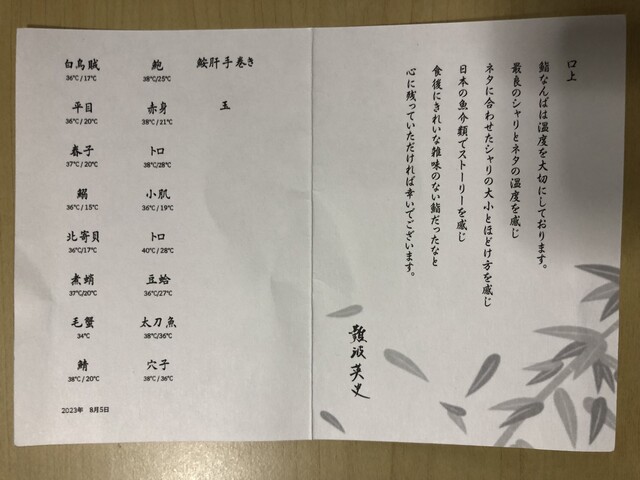 口上
鮨なんばは温度を大切にしております。
最良のシャリとネタの温度を感じ
ネタに合わせたシャリの大小とほどけ方を感じ
日本の魚介類でストーリーを感じ
食後にきれいな雑味のない鮨だったなと
心に残っていただければ幸いでございます。
難波英史
白烏賊
36℃/17℃
平目
36℃/20℃
春子
37℃/20℃
鰯
36℃/15℃
北寄貝
36℃/17℃
煮蛸
37℃/20℃
毛蟹
34℃
鯖
38℃/20℃
鮑
38℃/25℃
赤身
38℃/21℃
トロ
38℃/28℃
小肌
36℃/19℃
トロ
40℃/28℃
豆蛤
36℃/27℃
太刀魚
38℃/36℃
穴子
38℃/36℃
鮟肝手巻き
玉
2023年 8月5日